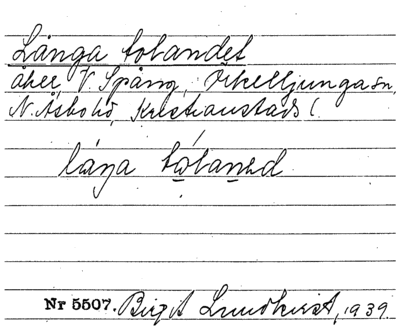 Långa tolandet
åker, V. Spång, Örkelljunga sn,
N. Åsbo hd, Kristianstads l.
Nr 5507. Birgit Lundkvist, 1939.